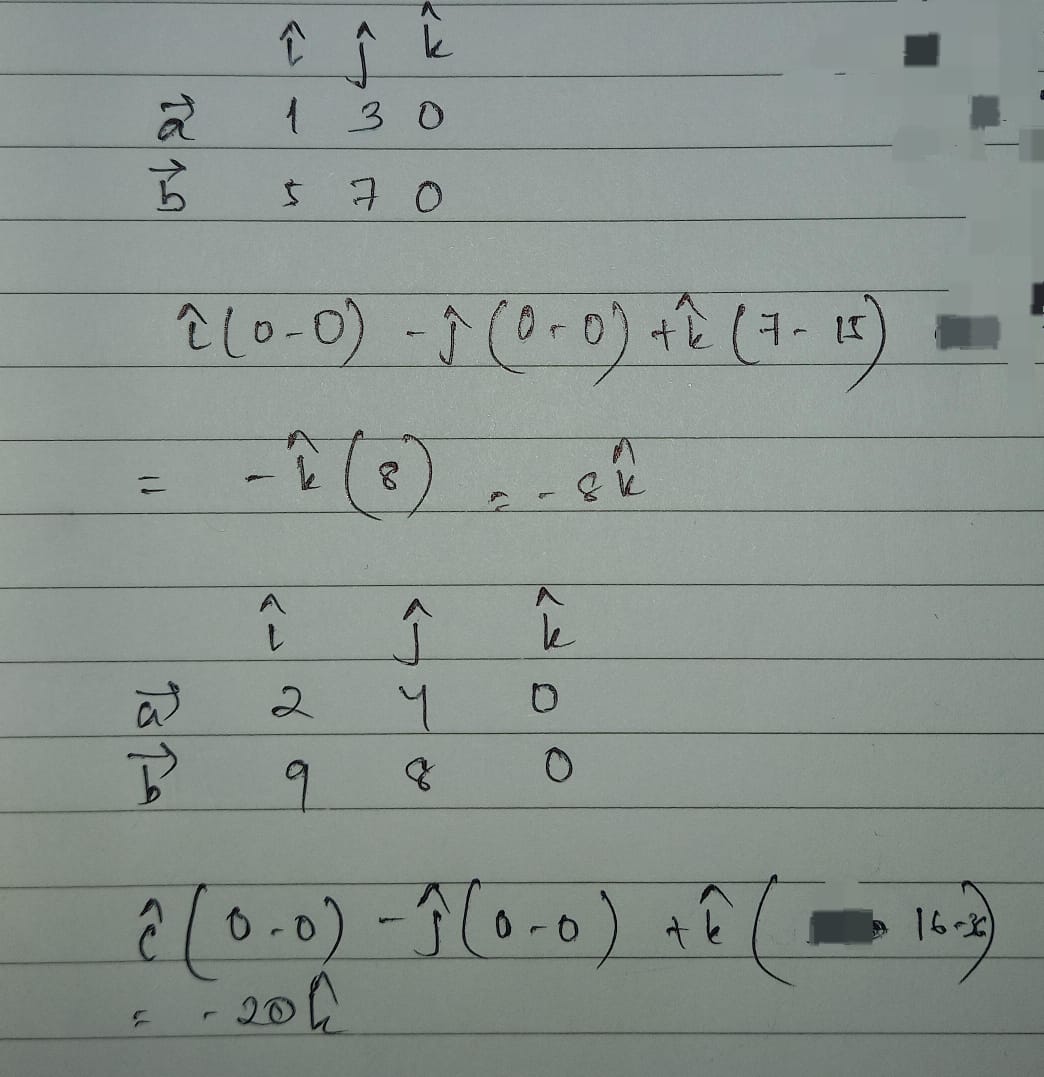 î ĵ k̂
a⃗ 1 3 0
b⃗ 5 7 0
î(0-0) -ĵ(0-0) +k̂(7-15)
= -k̂(8) = -8k̂
î ĵ k̂
a⃗ 2 4 0
b⃗ 9 8 0
î(0-0) -ĵ(0-0) +k̂(16-36)
= -20k̂